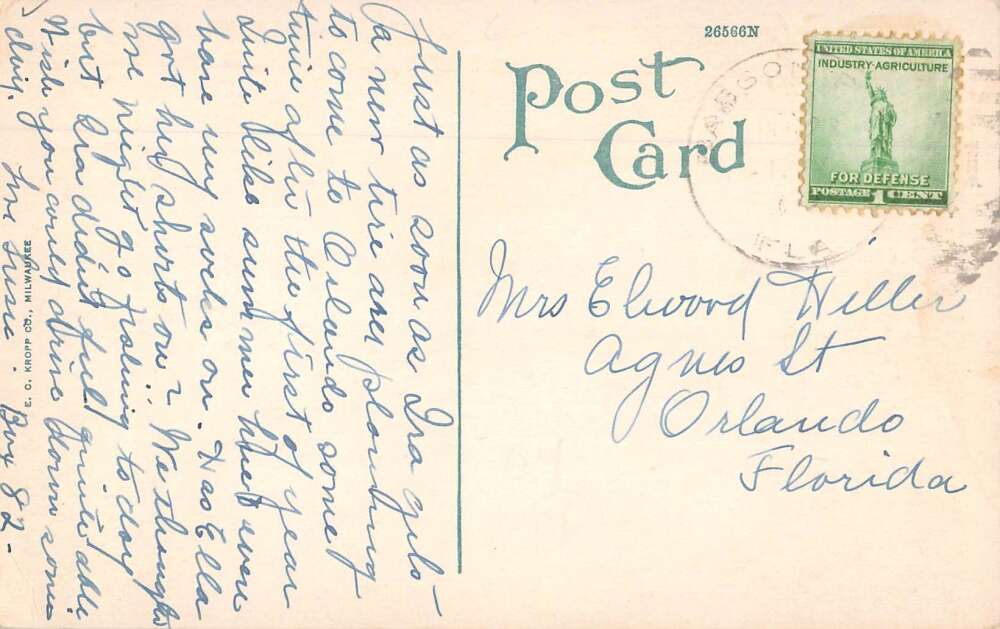 26566N
Post
Card
UNITED STATES OF AMERICA
INDUSTRY-AGRICULTURE
FOR DEFENSE
POSTAGE 1 CENT
FLA
Mrs Elwood Hiller
Agnes St
Orlando
Florida
Just as soon as Ira gets
a new tire are planning
to come to Orlando some
time after the first of year
Quite like summer here even
have my socks on. Has Ella
got her shorts on? We thought
we might go fishing to day
but Ira didn't feel quite able
Wish you could drive down some
day. Susie. Box 82-
E. C. KROPP CO., MILWAUKEE